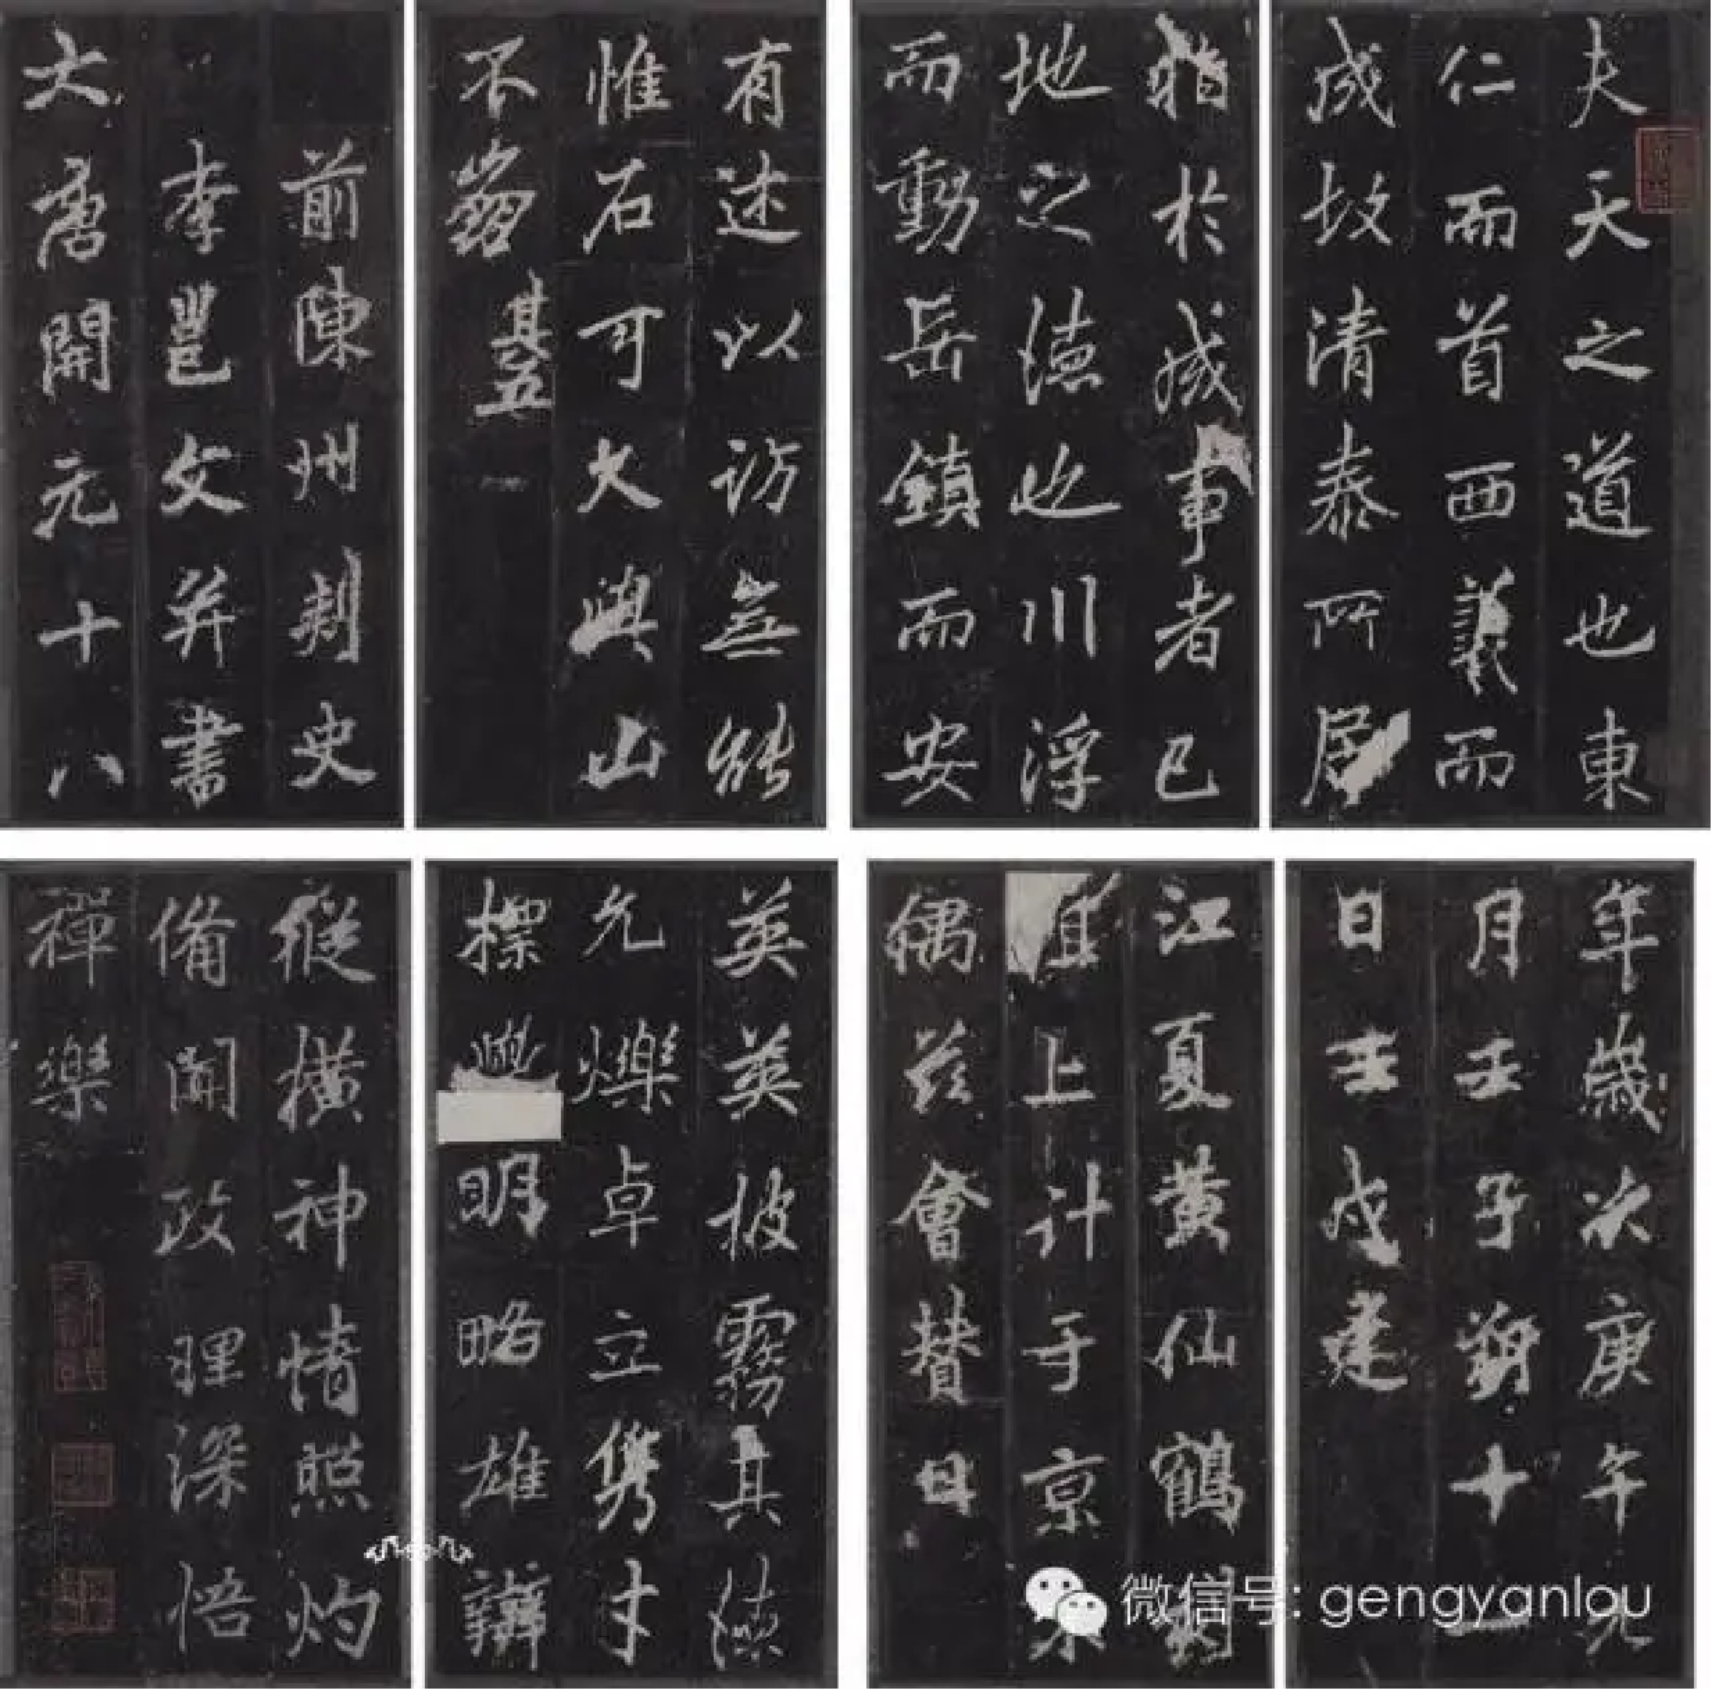 夫天之道也東
仁而首西義而
成故清泰所居
指於成事者已
地之德也川浮
而動岳鎮而安
有述以訪無能
惟石可久與山
不 其五
前陳州刺史
李邕文并書
大唐開元十八
年歲次庚午九
月壬子朔十一
日壬戌建
江夏黃仙鶴刻
且上計于京
偶茲會贊曰
英英披霧其德
允爍卓立雋才
標明略雄辯
縱橫神情照灼
備聞政理深悟
禪樂
微信号: gengyanlou